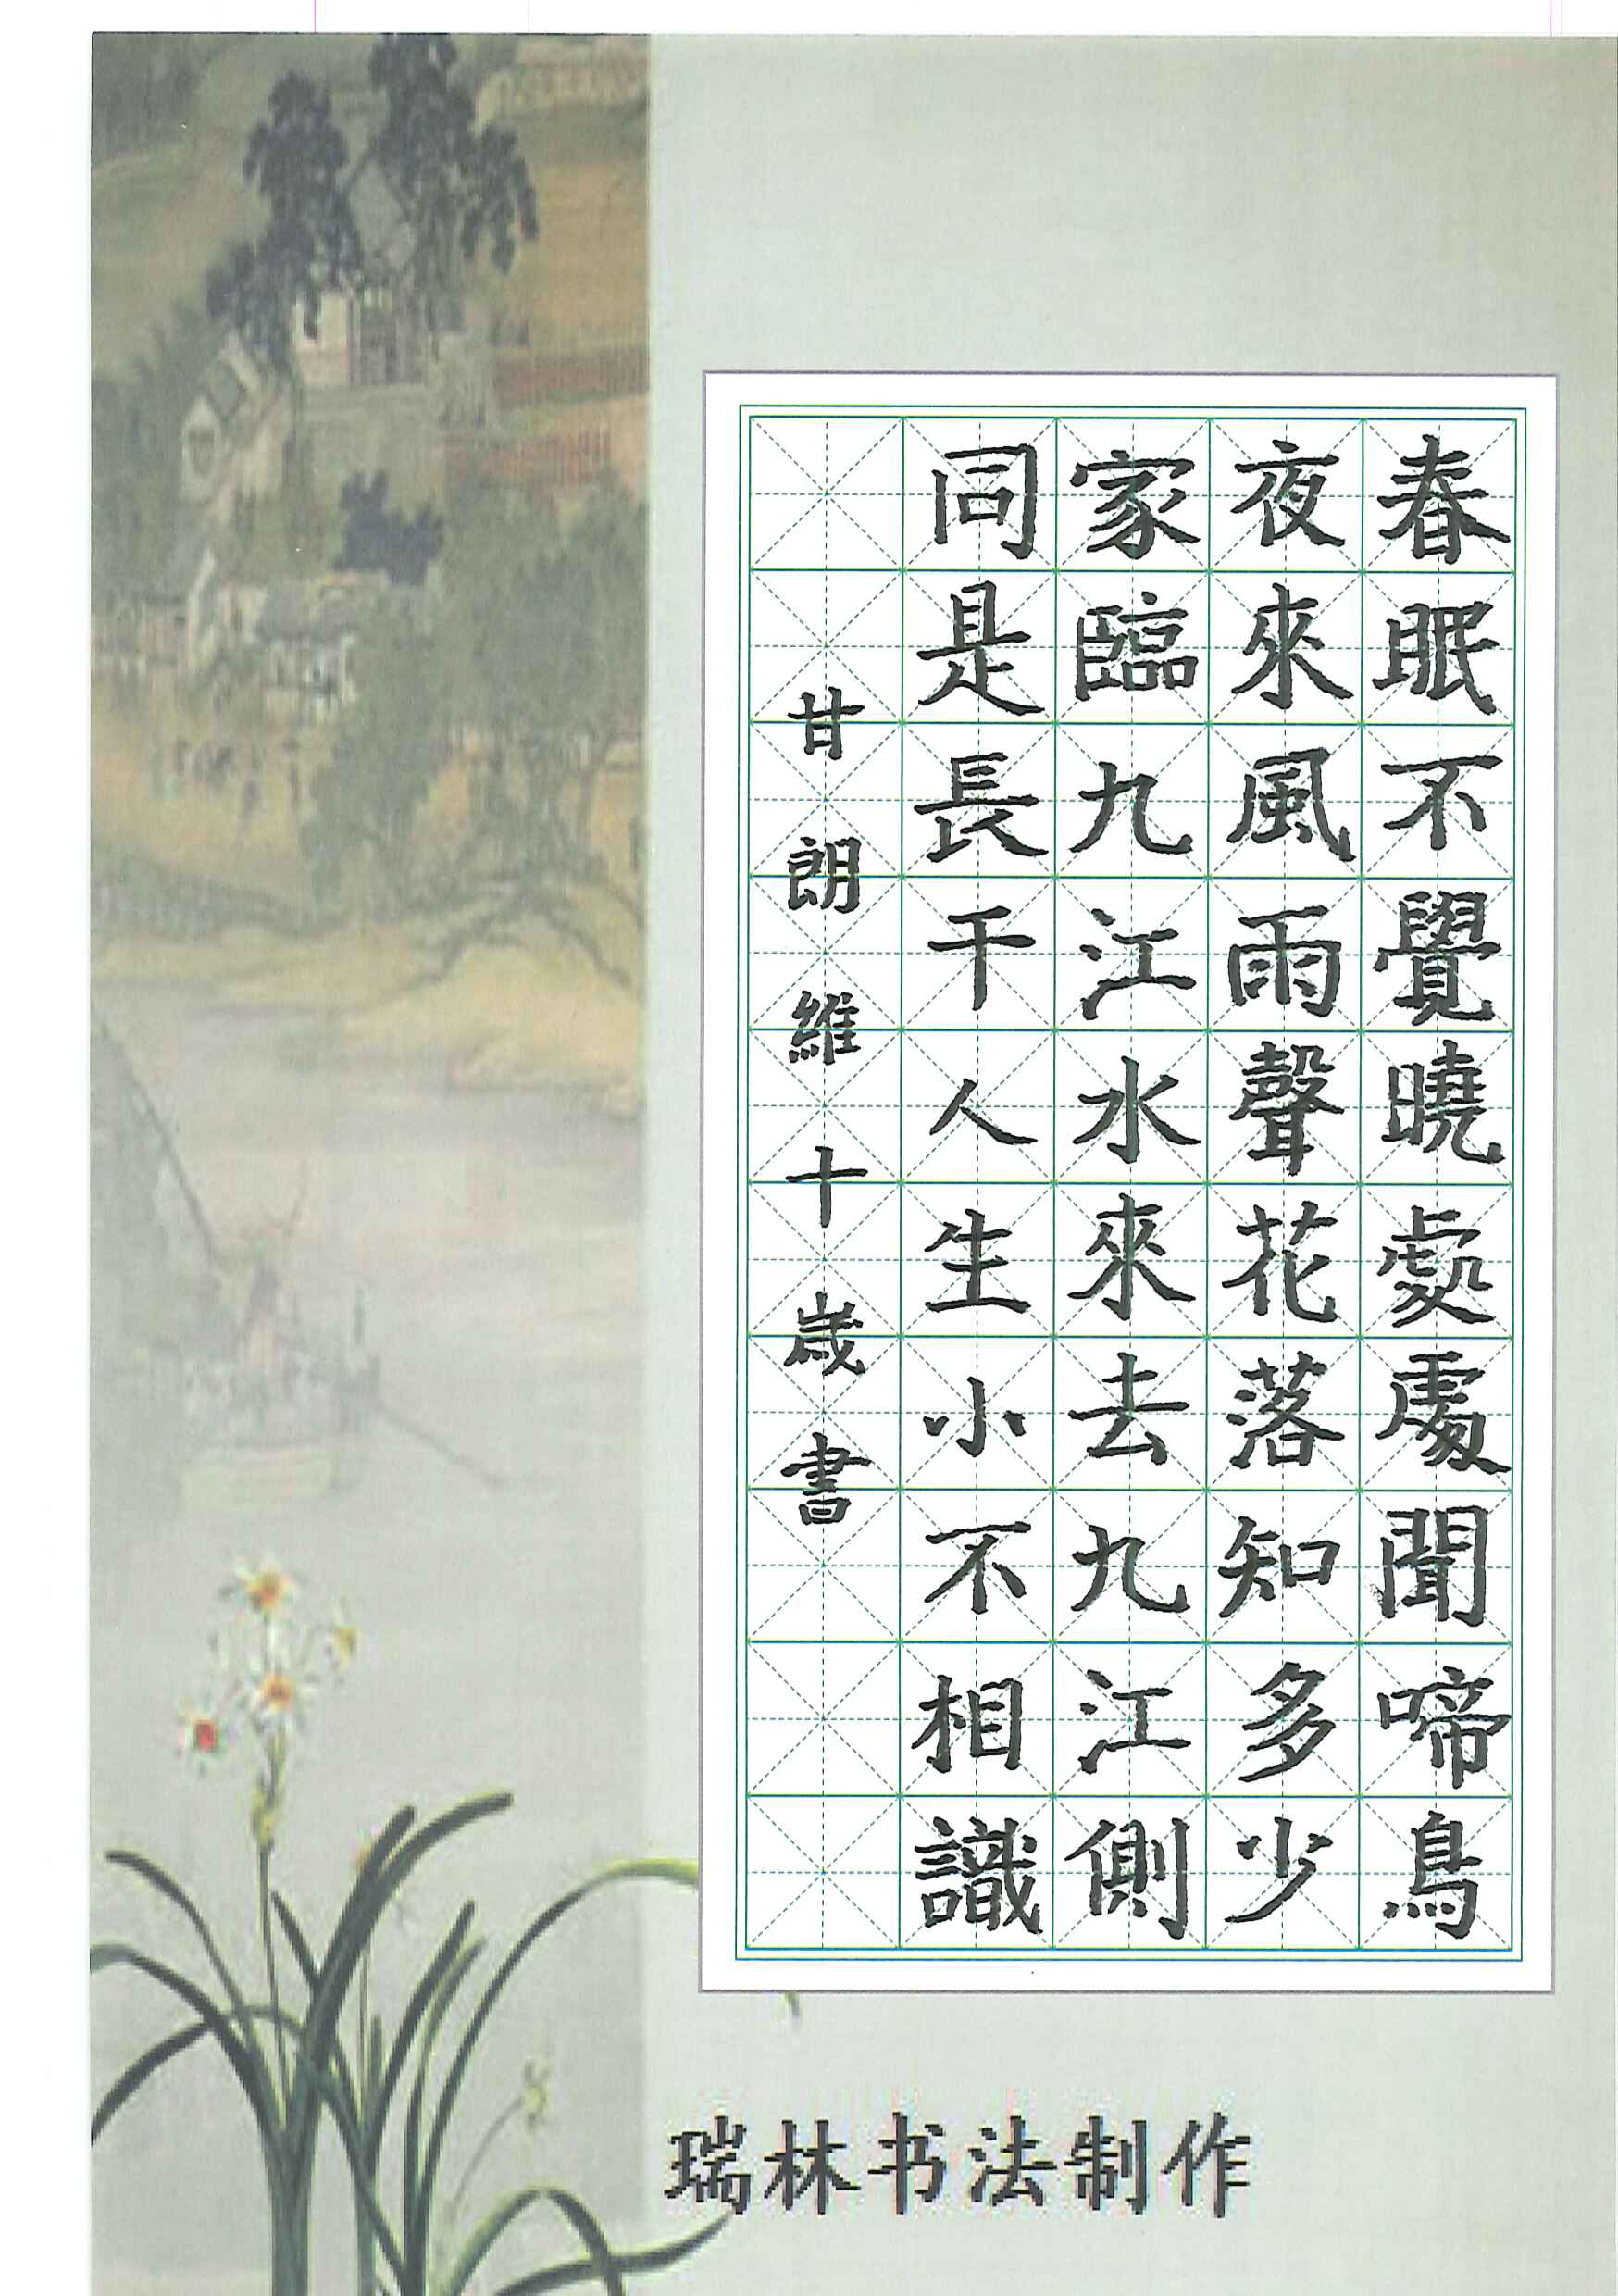 春眠不覺曉處處聞啼鳥
夜來風雨聲花落知多少
家臨九江水來去九江側
同是長干人生小不相識
甘朗維十歲書
瑞林书法制作